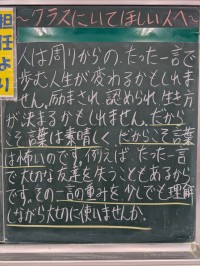 ～クラスにいてほしい人へ～
担任より
人は周りからの、たった一言で
歩む人生が変わるかもしれま
せん。励まされ、認められ、生き方
が決まるかもしれません。だから
こそ言葉は素晴しく、だからこそ言葉
は怖いのです。例えば、たった一言
で大切な友達を失うこともあるから
です。その一言の重みを少しでも理解
しながら大切に使いませんか。